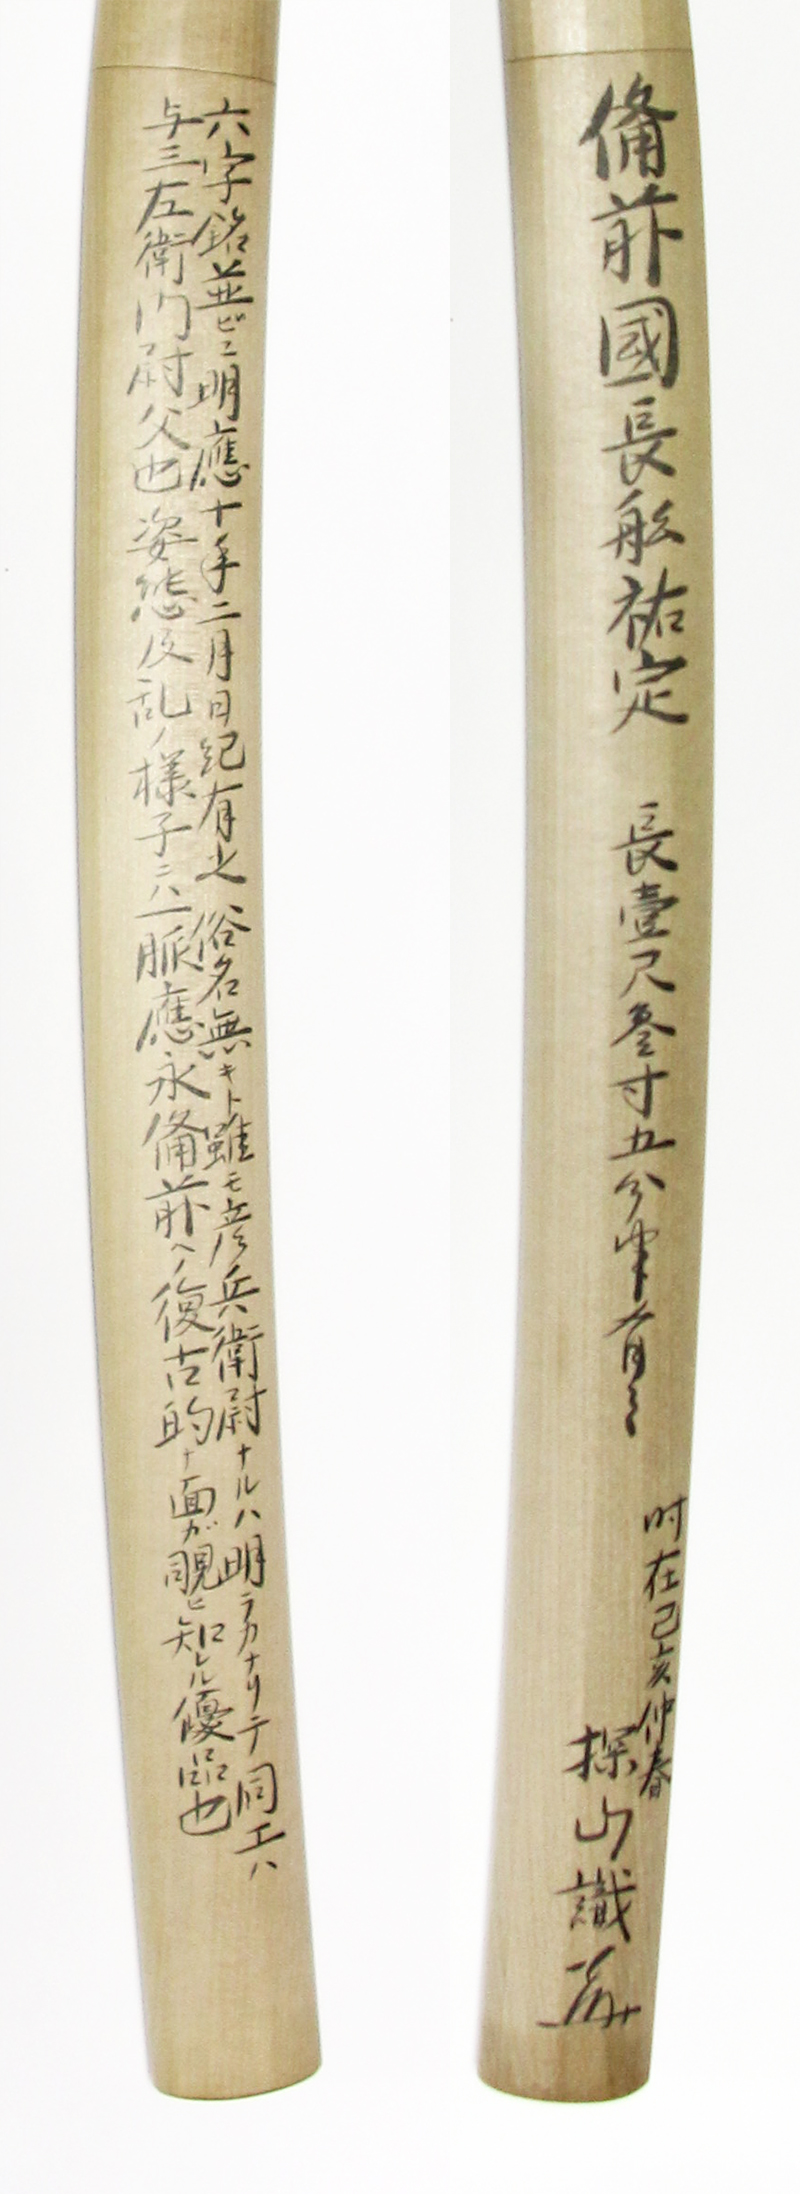 備前國長船祐定 長壹尺参寸五分半有之
时在己亥仲春
探山識
六字銘並ビニ明應十年二月日紀有之 俗名無キト雖モ彦兵衛尉ナルハ明ラカナリテ同工ハ
与三左衛門尉父也 姿態及乱ノ様子ニハ一脈應永備前ヘノ復古的ナ面ガ覗ヒ知レル優品也